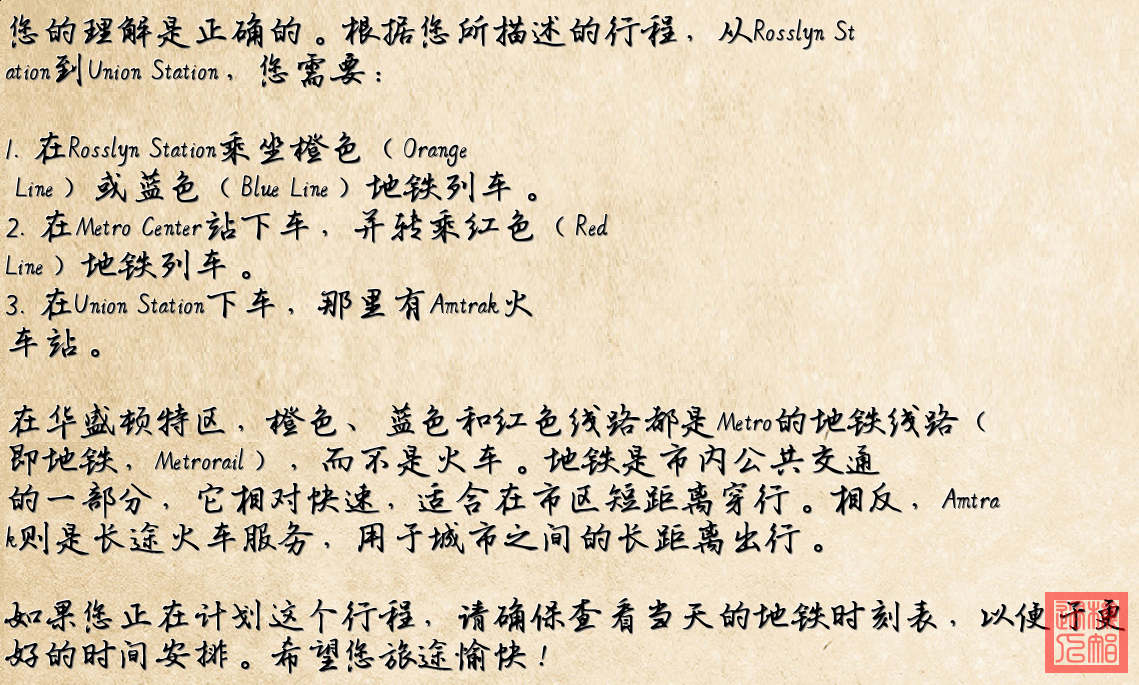 您的理解是正确的。根据您所描述的行程，从Rosslyn St
ation到Union Station，您需要：
1. 在Rosslyn Station乘坐橙色（Orange
Line）或蓝色（Blue Line）地铁列车。
2. 在Metro Center站下车，并转乘红色（Red
Line）地铁列车。
3. 在Union Station下车，那里有Amtrak火
车站。
在华盛顿特区，橙色、蓝色和红色线路都是Metro的地铁线路（
即地铁，Metrorail），而不是火车。地铁是市内公共交通
的一部分，它相对快速，适合在市区短距离穿行。相反，Amtra
k则是长途火车服务，用于城市之间的长距离出行。
如果您正在计划这个行程，请确保查看当天的地铁时刻表，以便于更
好的时间安排。希望您旅途愉快！